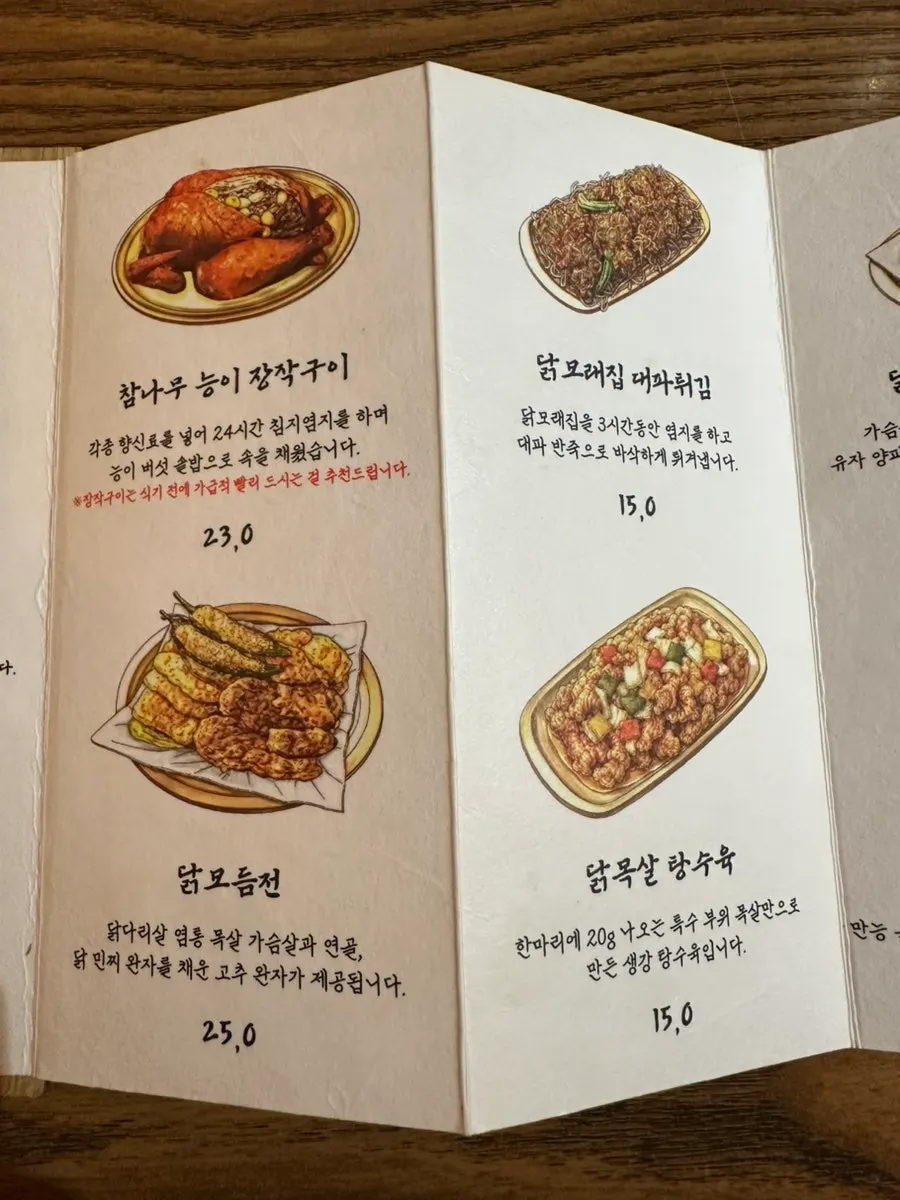 참나무 능이 장작구이
각종 향신료를 넣어 24시간 침지염지를 하며
능이 버섯 솥밥으로 속을 채웠습니다.
※장작구이는 식기 전에 가급적 빨리 드시는 걸 추천드립니다.
23,0
닭모듬전
닭다리살 염통 목살 가슴살과 연골,
닭 민찌 완자를 채운 고추 완자가 제공됩니다.
25,0
닭모래집 대파튀김
닭모래집을 3시간동안 염지를 하고
대파 반죽으로 바삭하게 튀겨냅니다.
15,0
닭목살 탕수육
한마리에 20g 나오는 특수 부위 목살만으로
만든 생강 탕수육입니다.
15,0
다.
가슴
유자 양파
만능